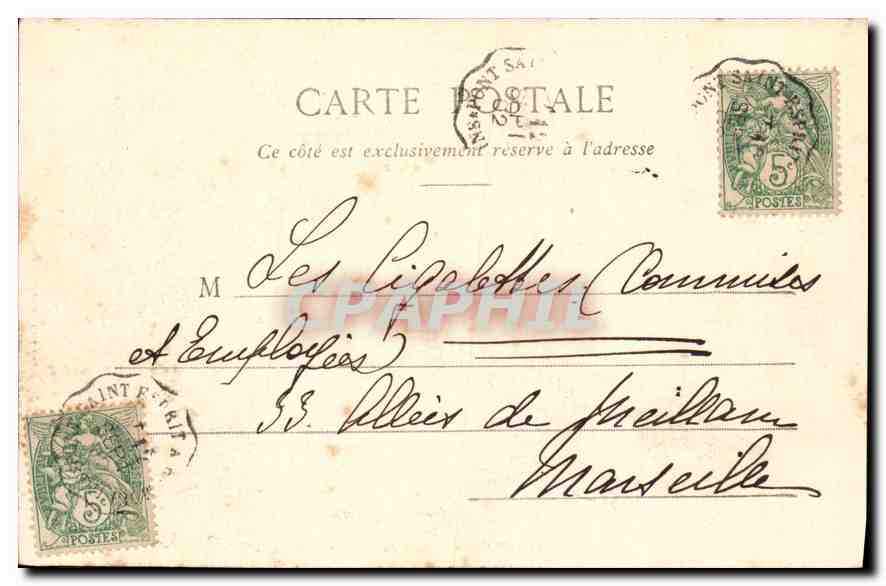 CARTE POSTALE
Ce côté est exclusivement réservé à l'adresse
PONT SAINT
PONT SAINT-ESPRIT
5c
POSTES
M Les Cigalettes (Commises
et Employées)
33. Allées de Meilhan
Marseille
CPAPHIL
SAINT ESPRIT A
5c
POSTES